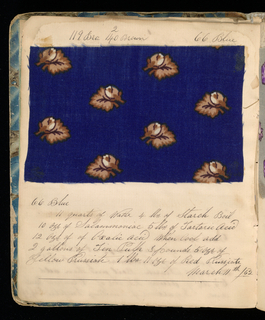 119 Dra 2/0 Brown 66 Blue
66 Blue
4 quarts of Water 2 lbs of Starch Boil
10 ozs of Salammoniac 2 lbs of Tartaric Acid
12 ozs of Oxalic Acid when cool add
2 gallons of Tin Pulp 3 pounds 2 ozs of
Yellow Prussiate 1 lb 11 ozs of Red Prussiate
March 11th /53